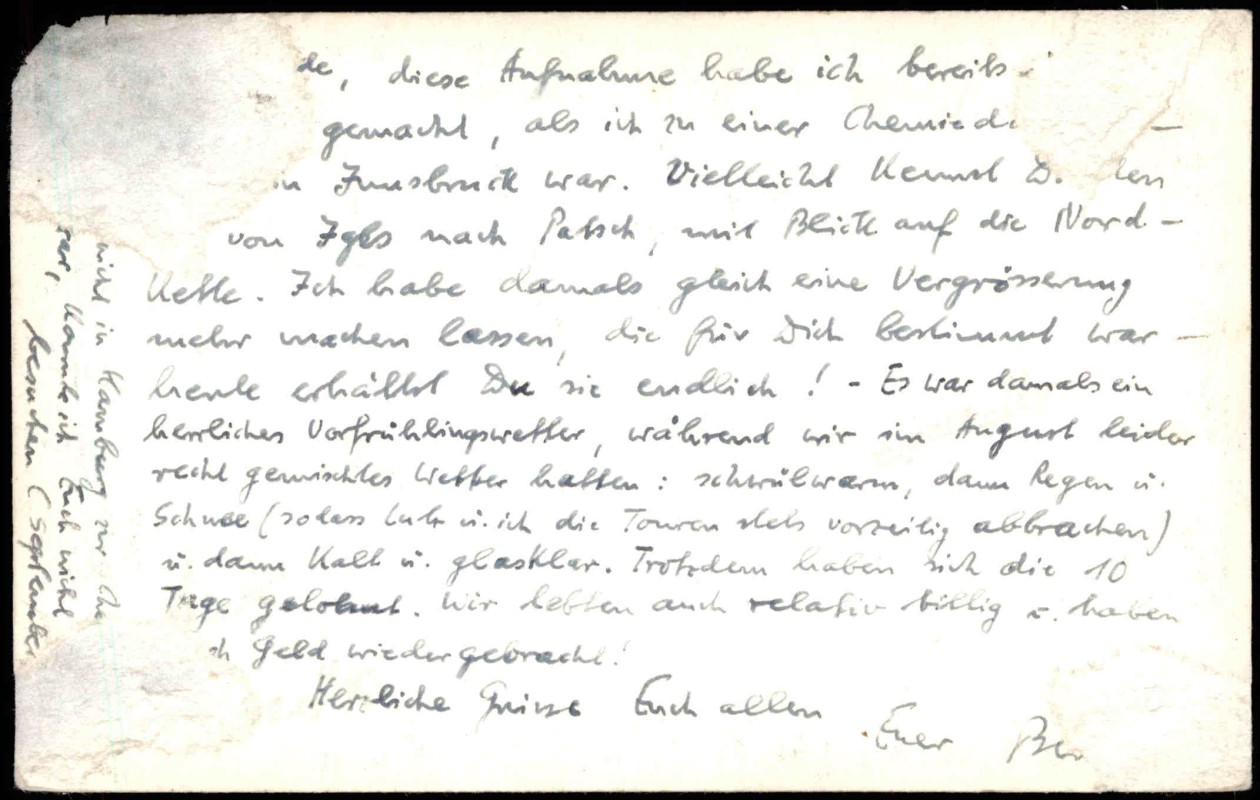 de, diese Aufnahme habe ich bereits
gemacht, als ich zu einer Chemie
Innsbruck war. Vielleicht kennst D. den
von Igls nach Patsch, mit Blick auf die Nord-
kette. Ich habe damals gleich eine Vergrösserung
mehr machen lassen, die für Dich bestimmt war -
heute erhältst Du sie endlich! - Es war damals ein
herrliches Vorfrühlingswetter, während wir im August leider
recht gemischtes Wetter hatten: schwülwarm, dann Regen u.
Schnee (sodass u. ich die Touren stets vorzeitig abbrachen)
u. dann kalt u. glasklar. Trotzdem haben sich die 10
Tage gelohnt. Wir lebten auch relativ billig u. haben
Geld wiedergebracht!
Herzliche Grüsse Euch allen
Euer Ber
nicht in Hamburg zur Che
konnte ich Euch nicht
besuchen (September